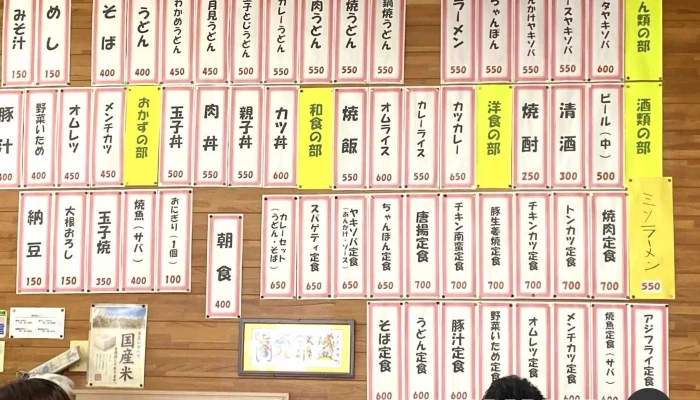 ん類の部
タヤキソバ 600
ースヤキソバ 550
んかけヤキソバ 550
ちゃんぽん 550
ラーメン 550
鍋焼うどん 550
焼うどん 550
肉うどん 550
カレーうどん 550
子とじうどん 500
月見うどん 450
わかめうどん 450
うどん 400
そば 400
めし 150
みそ汁 150
酒類の部
ビール(中) 500
清酒 300
焼酎 250
洋食の部
カツカレー 650
カレーライス 550
オムライス 600
焼飯 550
和食の部
カツ丼 600
親子丼 550
肉丼 550
玉子丼 500
おかずの部
メンチカツ 450
オムレツ 450
野菜いため 400
豚汁 400
ミソラーメン 550
焼肉定食 700
トンカツ定食 700
チキンカツ定食 700
豚生姜焼定食 700
チキン南蛮定食 700
唐揚定食 700
ちゃんぽん定食 650
ヤキソバ定食(あんかけ・ソース) 650
スパゲティ定食 650
カレーセット(うどん・そば) 650
朝食 400
おにぎり(1個) 100
焼魚(サバ) 400
玉子焼 350
大根おろし 150
納豆 150
アジフライ定食
焼魚定食(サバ)
メンチカツ定食 600
オムレツ定食
野菜いため定食
豚汁定食 600
うどん定食 600
そば定食 600
国産米